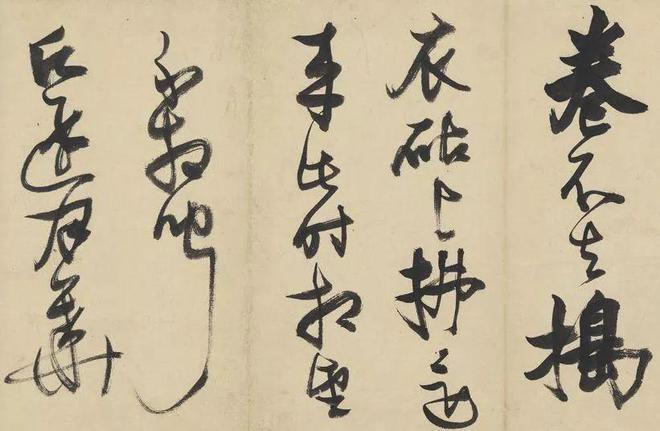 卷不去搗
衣砧上拂還
来此时相望
不相聞
願逐月華